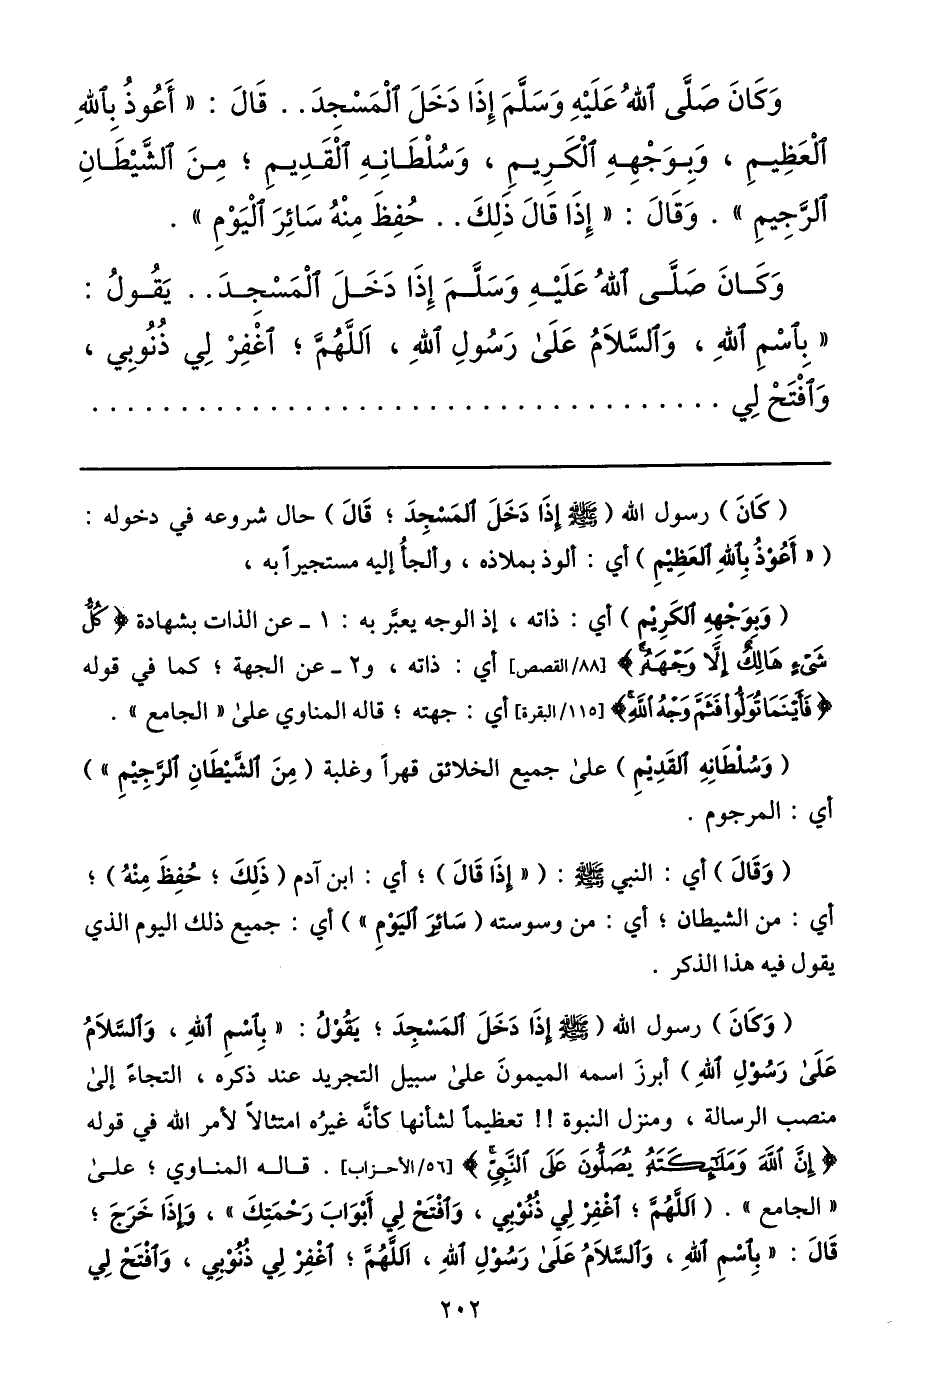 وَكَانَ صَلَّى ٱللهُ عَلَيْهِ وَسَلَّمَ إِذَا دَخَلَ ٱلْمَسْجِدَ.. قَالَ : « أَعُوذُ بِٱللهِ
ٱلْعَظِيمِ ، وَبِوَجْهِهِ ٱلْكَرِيمِ ، وَسُلْطَانِهِ ٱلْقَدِيمِ ؛ مِنَ ٱلشَّيْطَانِ
ٱلرَّجِيمِ » . وَقَالَ : « إِذَا قَالَ ذَلِكَ.. حُفِظَ مِنْهُ سَائِرَ ٱلْيَوْمِ » .
وَكَانَ صَلَّى ٱللهُ عَلَيْهِ وَسَلَّمَ إِذَا دَخَلَ ٱلْمَسْجِدَ.. يَقُولُ :
« بِٱسْمِ ٱللهِ ، وَٱلسَّلاَمُ عَلَىٰ رَسُولِ ٱللهِ ، اَللَّهُمَّ ؛ ٱغْفِرْ لِي ذُنُوبِي ،
وَٱفْتَحْ لِي ....................................
( كَانَ ) رسول الله ( ﷺ إِذَا دَخَلَ ٱلمَسْجِدَ ؛ قَالَ ) حال شروعه في دخوله :
( « أَعُوْذُ بِٱللهِ ٱلعَظِيْمِ ) أي : ألوذ بملاذه ، وألجأُ إليه مستجيراً به ،
( وَبِوَجْهِهِ ٱلكَرِيْمِ ) أي : ذاته ، إذ الوجه يعبَّر به : ١ ـ عن الذات بشهادة ﴿ كُلُّ
شَىْءٍ هَالِكٌ إِلَّا وَجْهَهُۥ ﴾ [٨٨/القصص] أي : ذاته ، و٢ ـ عن الجهة ؛ كما في قوله
﴿ فَأَيْنَمَا تُوَلُّوا۟ فَثَمَّ وَجْهُ ٱللَّهِ ﴾ [١١٥/البقرة] أي : جهته ؛ قاله المناوي علىٰ « الجامع » .
( وَسُلْطَانِهِ ٱلقَدِيْمِ ) علىٰ جميع الخلائق قهراً وغلبة ( مِنَ ٱلشَّيْطَانِ ٱلرَّجِيْمِ » )
أي : المرجوم .
( وَقَالَ ) أي : النبي ﷺ : ( « إِذَا قَالَ ) ؛ أي : ابن آدم ( ذَلِكَ ؛ حُفِظَ مِنْهُ ) ؛
أي : من الشيطان ؛ أي : من وسوسته ( سَائِرَ ٱليَوْمِ » ) أي : جميع ذلك اليوم الذي
يقول فيه هذا الذكر .
( وَكَانَ ) رسول الله ( ﷺ إِذَا دَخَلَ ٱلمَسْجِدَ ؛ يَقُوْلُ : « بِٱسْمِ ٱللهِ ، وَٱلسَّلاَمُ
عَلَىٰ رَسُوْلِ ٱللهِ ) أبرزَ اسمه الميمونَ علىٰ سبيل التجريد عند ذكره ، التجاءً إلىٰ
منصب الرسالة ، ومنزل النبوة !! تعظيماً لشأنها كأنَّه غيرُه امتثالاً لأمر الله في قوله
﴿ إِنَّ ٱللَّهَ وَمَلَٰٓئِكَتَهُۥ يُصَلُّونَ عَلَى ٱلنَّبِيِّ ﴾ [٥٦/الأحزاب] . قاله المناوي ؛ علىٰ
« الجامع » . ( اَللَّهُمَّ ؛ ٱغْفِرْ لِي ذُنُوْبِي ، وَٱفْتَحْ لِي أَبْوَابَ رَحْمَتِكَ » ، وَإِذَا خَرَجَ ؛
قَالَ : « بِٱسْمِ ٱللهِ ، وَٱلسَّلاَمُ عَلَىٰ رَسُوْلِ ٱللهِ ، اَللَّهُمَّ ؛ ٱغْفِرْ لِي ذُنُوْبِي ، وَٱفْتَحْ لِي
٢٠٢